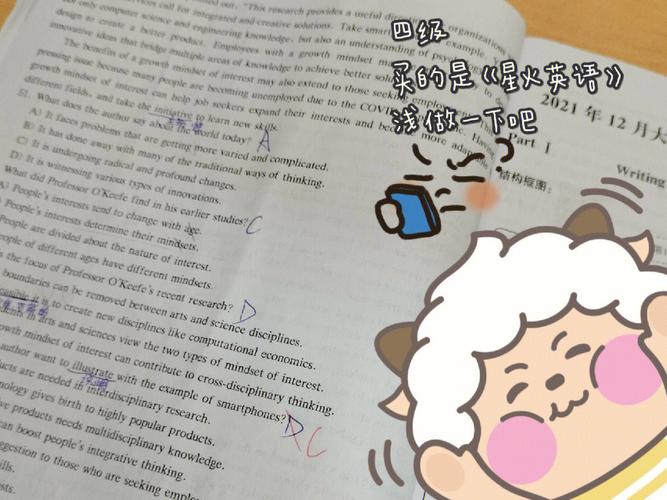 services call for integrated and creative solutions. Take smart
not only computer science and engineering knowledge, but also an understanding of psy
design to create a better product. Employees with a growth mindset
innovative ideas that bridge multiple areas of knowledge to achieve better
The benefits of a growth mindset of interest may also extend to those seeking employ
pressing issue because many people are becoming unemployed due to the COVI
growth mindset of interest can help job seekers expand their interests and bec more adap
different fields, and take the initiative to learn new skills.
51. What does the author say about the world today? A
A) It faces problems that are getting more varied and complicated.
B) It has done away with many of the traditional ways of thinking.
C) It is undergoing radical and profound changes.
D) It is witnessing various types of innovations.
What did Professor O'Keefe find in his earlier studies? C
A) People's interests tend to change with age.
People's interests determine their mindsets.
People are divided about the nature of interest.
people of different ages have different mindsets.
is the focus of Professor O'Keefe's recent research? D
boundaries can be removed between arts and science disciplines.
feasible it is to create new disciplines like computational economics.
in arts and sciences view the two types of mindset of interest.
growth mindset of interest can contribute to cross-disciplinary thinking.
author want to illustrate with the example of smartphones? D C
说明
are needed in interdisciplinary research.
nology gives birth to highly popular products.
ve products needs multidisciplinary knowledge.
can boost people's integrative thinking.
ggestion to those who are seeking emplo
ills.
ests.
四级
买的是《星火英语》
浅做一下吧
2021 年 12 月大
Part I
Writing
结构框图：